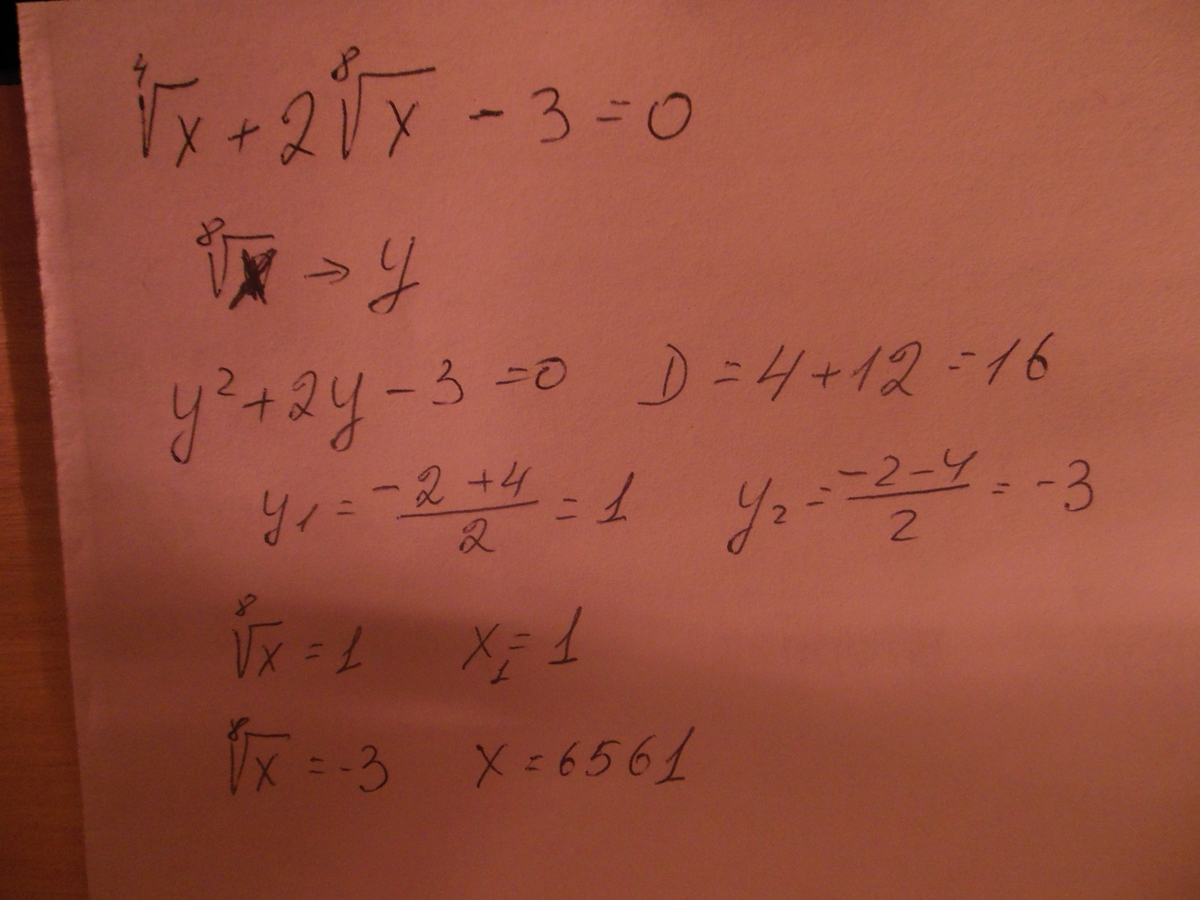 ⁴√x + 2 ⁸√x - 3 = 0
⁸√x → y
y² + 2y - 3 = 0 D = 4 + 12 = 16
y₁ = (-2 + 4)/2 = 1 y₂ = (-2 - 4)/2 = -3
⁸√x = 1 x₁ = 1
⁸√x = -3 x = 6561